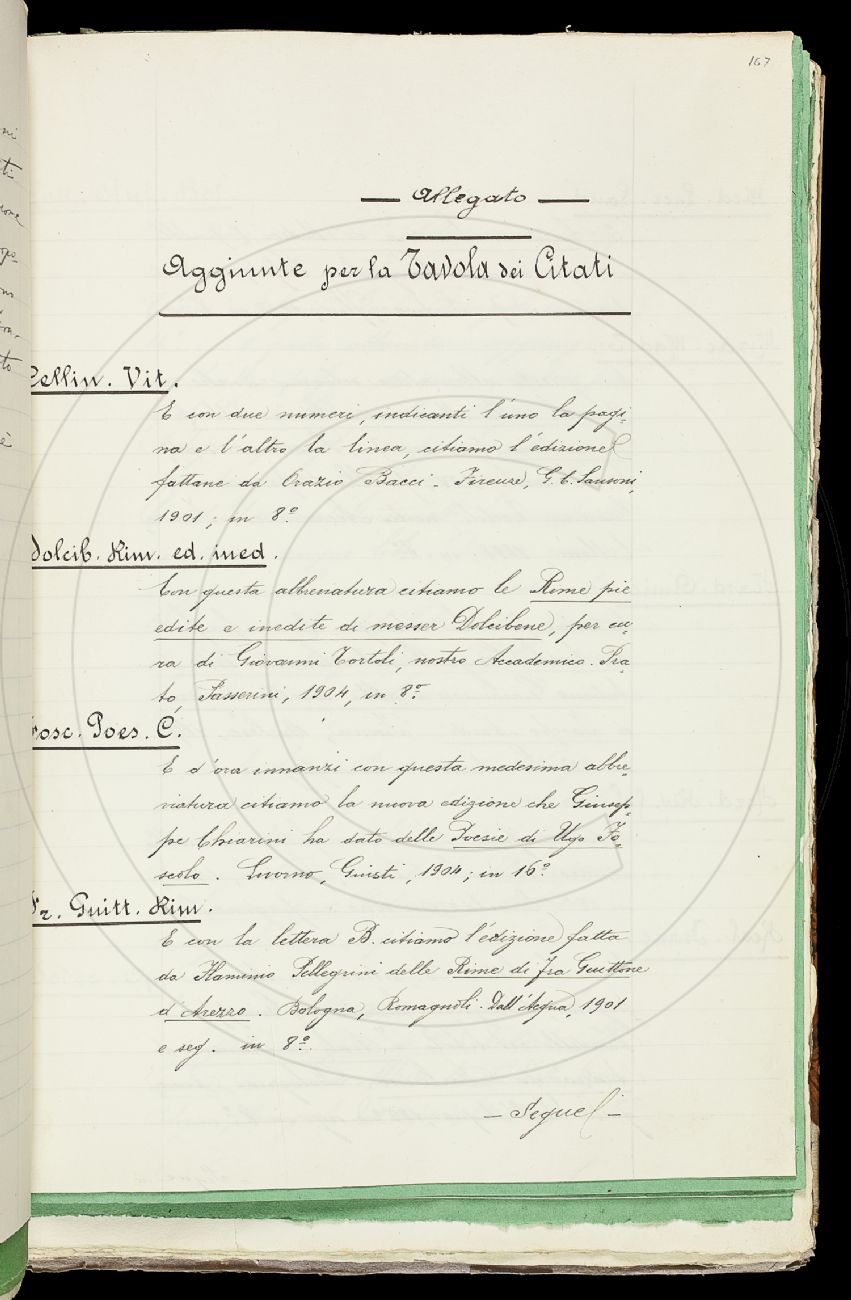 167
— Allegato —
Aggiunte per la Tavola dei Citati
Cellin. Vit.
E con due numeri, indicanti l'uno la pagi-
na e l'altro la linea, citiamo l'edizione
fattane da Orazio Bacci - Firenze, G. C. Sansoni,
1901; in 8.º
Dolcib. Rim. ed. ined.
Con questa abbreviatura citiamo le Rime pie
edite e inedite di messer Dolcibene, per cu-
ra di Giovanni Tortoli, nostro Accademico. Pra-
to, Passerini, 1904, in 8.º
Fosc. Poes. C.
E d'ora innanzi con questa medesima abbre-
viatura citiamo la nuova edizione che Giusep-
pe Chiarini ha dato delle Poesie di Ugo Fo-
scolo. Livorno, Giusti, 1904; in 16.º
Fr. Guitt. Rim.
E con la lettera B. citiamo l'edizione fatta
da Flaminio Pellegrini delle Rime di Fra Guittone
d'Arezzo. Bologna, Romagnoli-Dall'Acqua, 1901
e seg. in 8.º
— Segue —